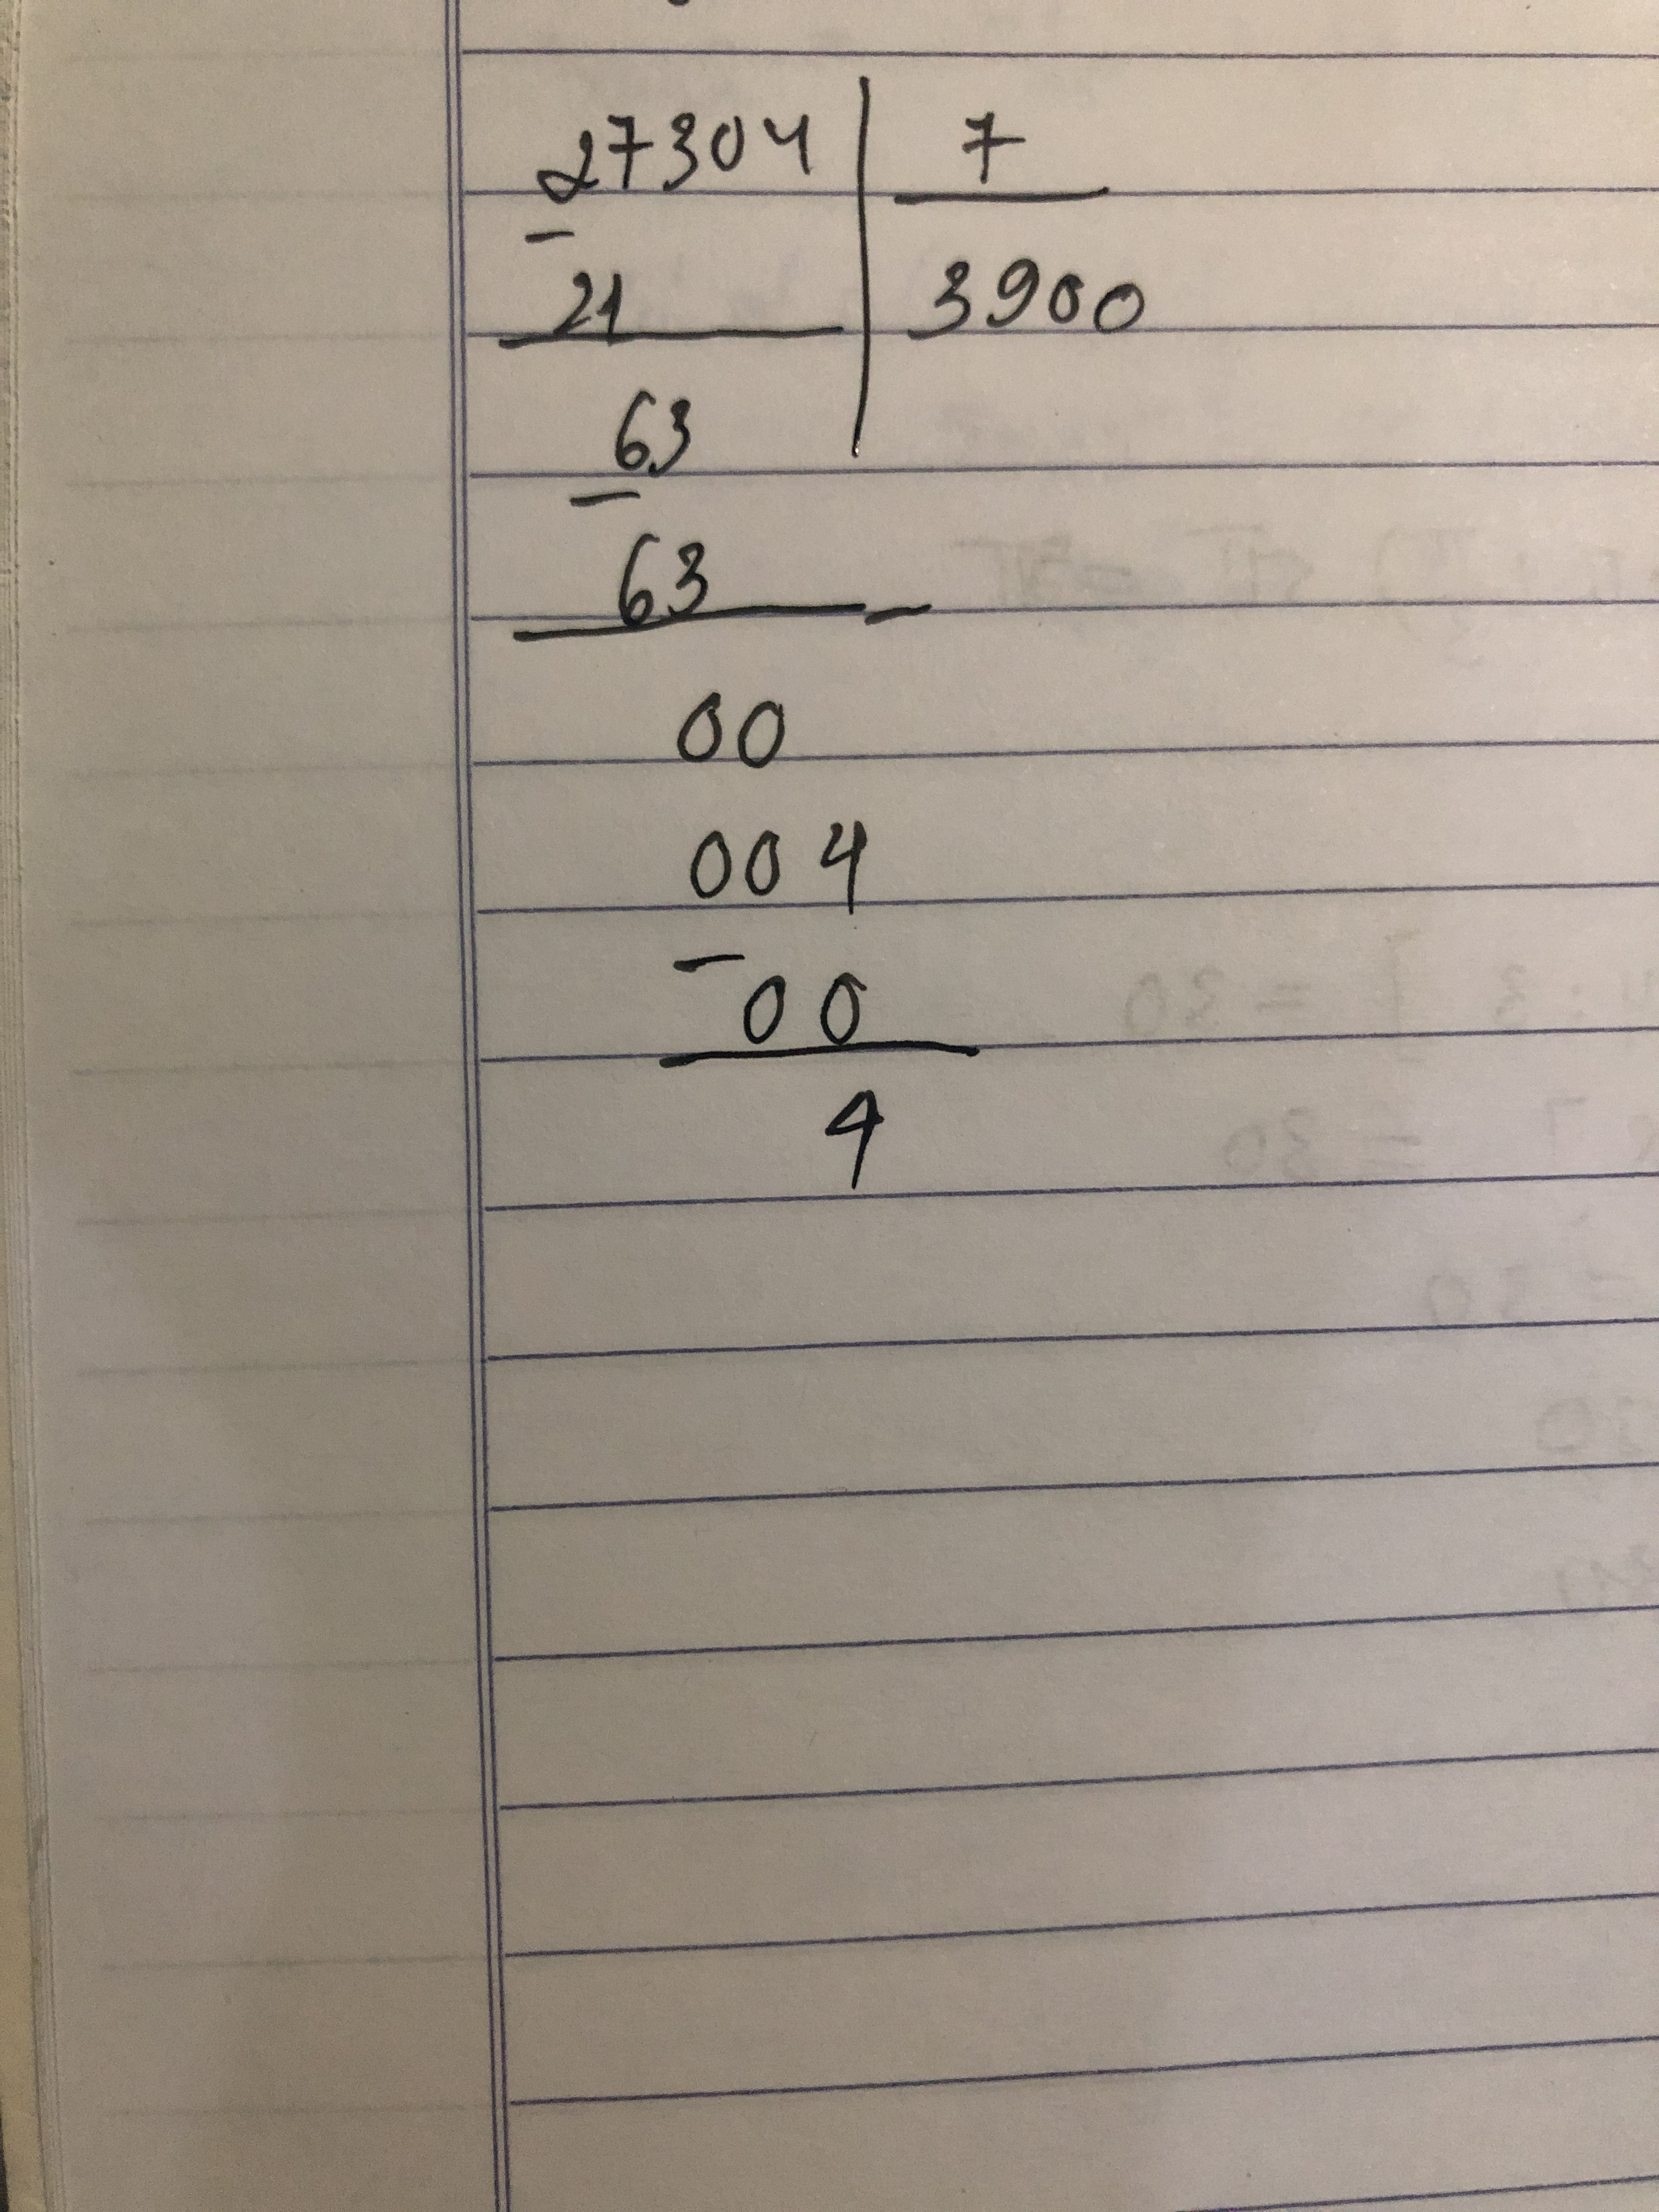 27304 | 7
- 21 | 3900
63
- 63
00
004
- 00
4